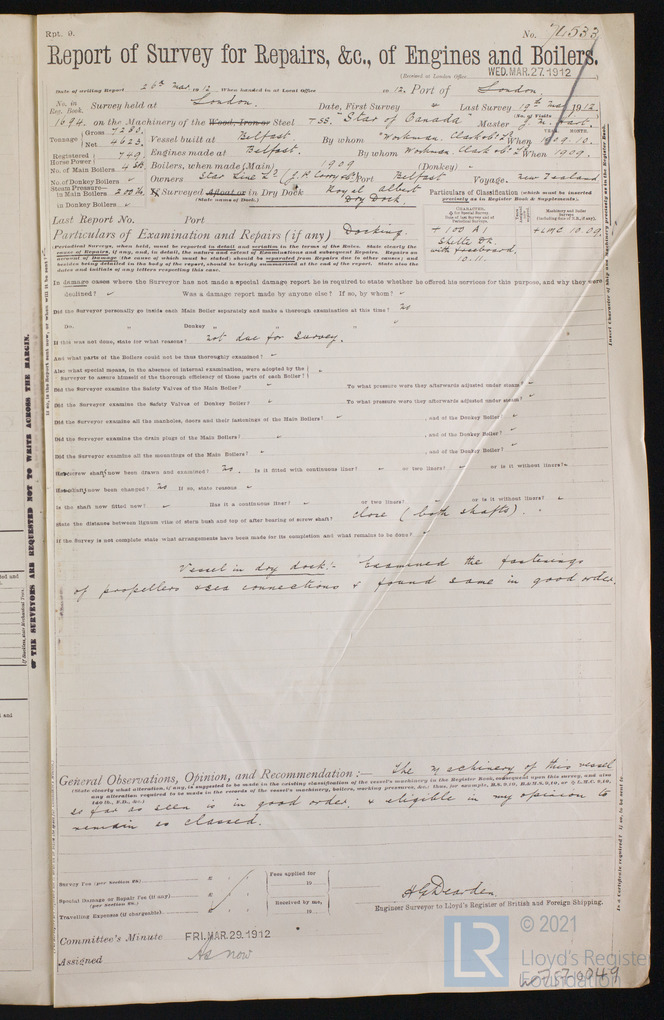 Rpt. 9. No. 74533
Report of Survey for Repairs, &c., of Engines and Boilers.
(Received at London Office WED. MAR. 27. 1912)
Date of writing Report 26th Mar 1912 When handed in at Local Office 10 12. Port of London.
No. in Reg. Book. Survey held at London. Date, First Survey " Last Survey 19th Mar 1912
(No. of Visits
1694. on the Machinery of the Wood, Iron or Steel TSS. "Star of Canada" Master
Tonnage Gross 7280. Net 4623. Vessel built at Belfast By whom Workman, Clark & Co Ld When 1909. 10.
YEAR. MONTH.
Registered Horse Power 749. Engines made at Belfast. By whom Workman Clark & Co Ld When 1909.
No. of Main Boilers Boilers, when made (Main) 1909 (Donkey) "
No. of Donkey Boilers " Owners Star Line Ld (J. P. Corry & Co) Port Belfast Voyage New Zealand
Steam Pressure— in Main Boilers 200 lb. If Surveyed Afloat or in Dry Dock Royal Albert Dry Dock.
(State name of Dock.)
in Donkey Boilers "
Particulars of Classification (which must be inserted precisely as in Register Book & Supplements).
Last Report No. Port
+ 100 A 1
Shelter Dk.
with freeboard,
10. 11.
+ LMC 10.09
Particulars of Examination and Repairs (if any) Docking.
Periodical Surveys, when held, must be reported in detail and seriatim in the terms of the Rules. State clearly the
cause of Repairs, if any, and, in detail, the nature and extent of Examinations and subsequent Repairs. Repairs on
account of Damage (the cause of which must be stated) should be separated from Repairs due to other causes; and
besides being detailed in the body of the report, should be briefly summarised at the end of the report. State also the
dates and initials of any letters respecting this case.
In damage cases where the Surveyor has not made a special damage report he is required to state whether he offered his services for this purpose, and why they were
declined? " Was a damage report made by anyone else? If so, by whom? "
Did the Surveyor personally go inside each Main Boiler separately and make a thorough examination at this time? No
Do. " Donkey " " "
If this was not done, state for what reasons? Not due for Survey.
And what parts of the Boilers could not be thoroughly examined? "
Also what special means, in the absence of internal examination, were adopted by the
Surveyor to assure himself of the thorough efficiency of those parts of each Boiler? "
Did the Surveyor examine the Safety Valves of the Main Boiler? " To what pressure were they afterwards adjusted under steam? "
Did the Surveyor examine the Safety Valves of Donkey Boiler? " To what pressure were they afterwards adjusted under steam? "
Did the Surveyor examine all the manholes, doors and their fastenings of the Main Boilers? " , and of the Donkey Boiler "
Did the Surveyor examine the drain plugs of the Main Boilers? " , and of the Donkey Boiler? "
Did the Surveyor examine all the mountings of the Main Boilers? " , and of the Donkey Boiler? "
Has screw shaft now been drawn and examined? No. Is it fitted with continuous liner? " or two liners? " or is it without liners? "
Has shaft now been changed? No If so, state reasons "
Is the shaft now fitted new? " Has it a continuous liner? " or two liners? " or is it without liners? "
State the distance between lignum vitæ of stern bush and top of after bearing of screw shaft. close (both shafts).
If the Survey is not complete state what arrangements have been made for its completion and what remains to be done? "
Vessel in dry dock:- Examined the fastenings
of propellers & sea connections & found same in good order.
General Observations, Opinion, and Recommendation :— The machinery of this vessel
(State clearly what alteration, if any, is suggested to be made in the existing classification of the vessel's machinery in the Register Book, consequent upon this survey, and also
any alteration required to be made in the records of the vessel's machinery, boilers, working pressures, &c.; thus, for example, B.S. 9,10, B.&M.S. 9,10, or L.M.C. 9,10,
140 lb., F.D., &c.)
so far as seen is in good order & eligible in my opinion to
remain as classed.
Survey Fee (per section 28) £ : : Fees applied for
19
Special Damage or Repair Fee (if any) (per section 28.) £ : : Received by me,
Travelling Expenses (if chargeable) £ : : 19
H G Dearden
Engineer Surveyor to Lloyd's Register of British and Foreign Shipping.
Committee's Minute FRI. MAR. 29. 1912
Assigned As now
OF THE SURVEYORS ARE REQUESTED NOT TO WRITE ACROSS THE MARGIN.
© 2021
LR
Lloyd's Register
Foundation